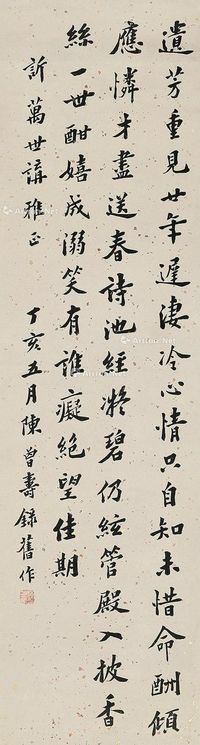 遺芳重見廿年遲淒冷心情只自知未惜命酬傾
應憐才盡送春詩池經凝碧仍絃管殿入披香
絲一世酣嬉成溺笑有誰癡絕望佳期
訢萬世講雅正 丁亥五月陳曾壽錄舊作